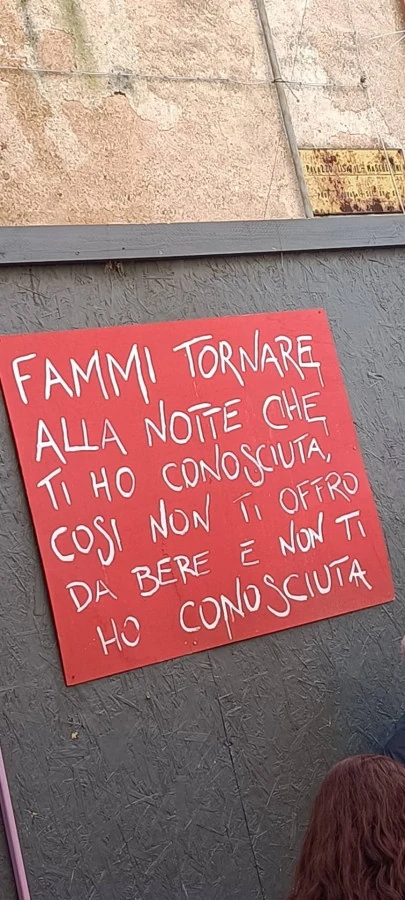 FAMMI TORNARE
ALLA NOTTE CHE
TI HO CONOSCIUTA,
COSI NON TI OFFRO
DA BERE E NON TI
HO CONOSCIUTA